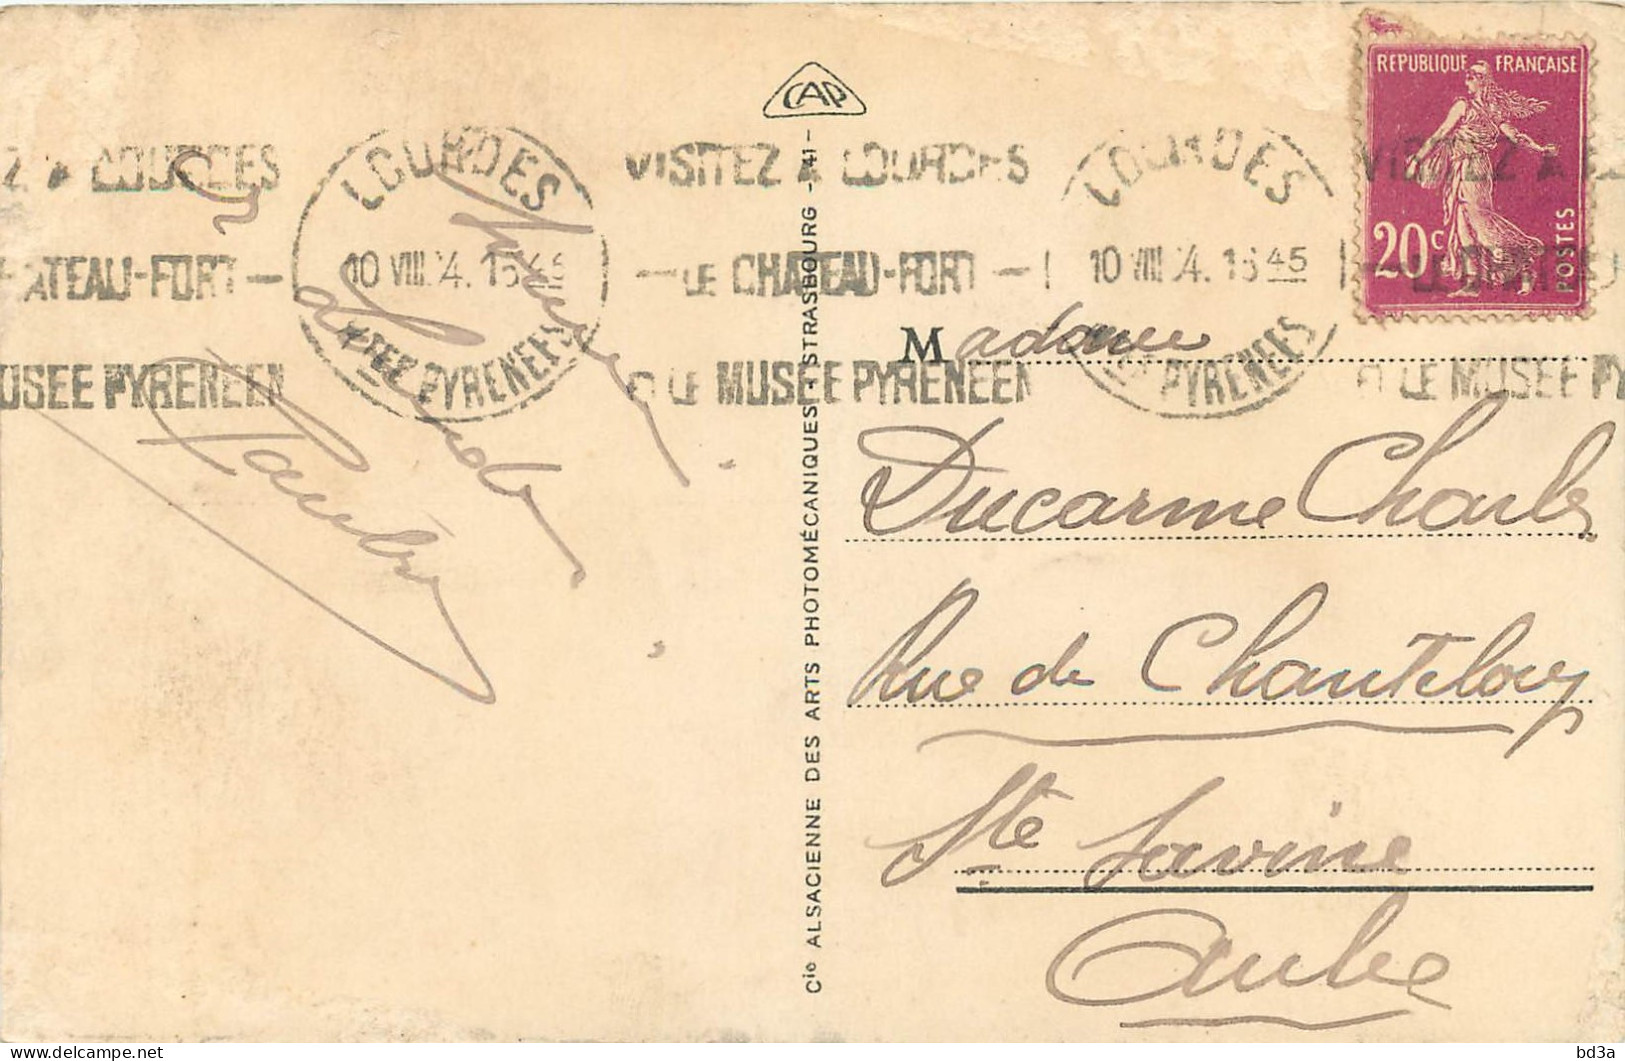 CAP
REPUBLIQUE FRANÇAISE
20c
POSTES
LOURDES
10 VIII 4. 15 45
Htes PYRENEES
VISITEZ A LOURDES
LE CHATEAU-FORT
ET LE MUSEE PYRENEEN
LOURDES
10 VIII 4. 15 45
PYRENEES
Z A LOURDES
ATEAU-FORT
USEE PYRENEEN
VISITEZ A
LE CHATEAU
ET LE MUSEE PY
Madame
Ducarme Charles
Rue de Chanteloup
Ste Savine
Aube
Cie ALSACIENNE DES ARTS PHOTOMÉCANIQUES - STRASBOURG -41-
bd3a